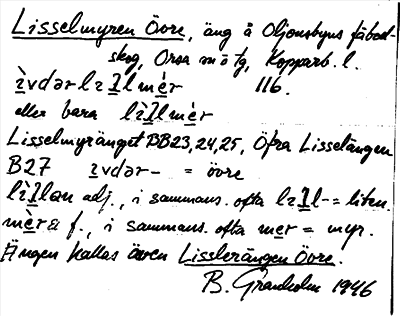 Lisselmyren Övre, äng å Oljonsbyns fäbod-
skog, Orsa sn o tg, Kopparb. l.
ìvdər lɪllmèr 116.
eller bara lìllmèr
Lisselmyränget BB23,24,25, Öfra Lisselängen
B27 ìvdər- = övre
lìllən adj., i sammans. ofta lɪll- = liten.
mèr f., i sammans. ofta mer = myr.
Ängen kallas även Lisslerängen Övre.
B. Granholm 1946